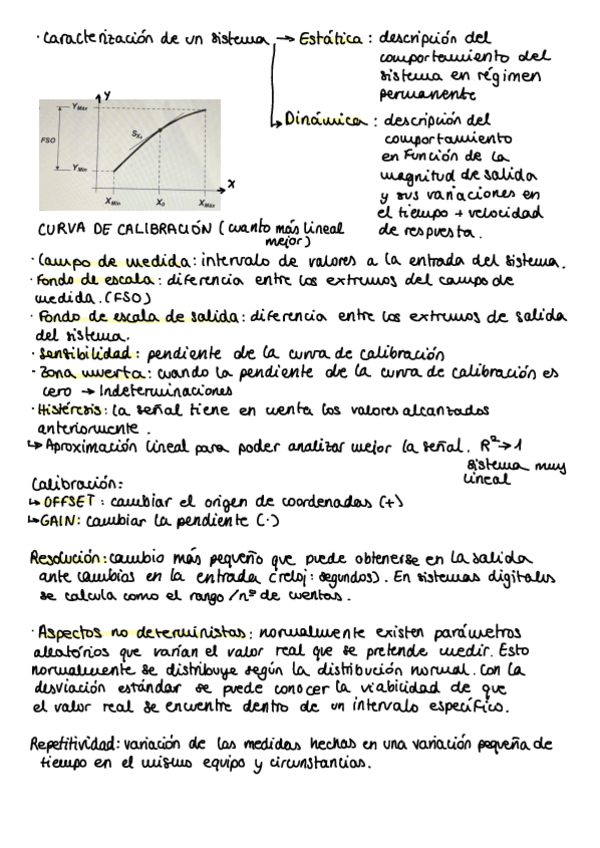 · Caracterización de un sistema → Estática : descripción del
comportamiento del
sistema en régimen
permanente
Dinámica : descripción del
comportamiento
en función de la
magnitud de salida
y sus variaciones en
el tiempo + velocidad
de respuesta.
Y
YMáx
FSO
SX0
YMín
XMín X0 XMáx
X
CURVA DE CALIBRACIÓN (cuanto más lineal
mejor)
· Campo de medida : intervalo de valores a la entrada del sistema.
· Fondo de escala : diferencia entre los extremos del campo de
medida. (FSO)
· Fondo de escala de salida : diferencia entre los extremos de salida
del sistema.
· Sensibilidad : pendiente de la curva de calibración
· Zona muerta : cuando la pendiente de la curva de calibración es
cero → Indeterminaciones
· Histéresis : la señal tiene en cuenta los valores alcanzados
anteriormente.
↳ Aproximación lineal para poder analizar mejor la señal. R²→1
sistema muy
lineal
Calibración:
↳ OFFSET : cambiar el origen de coordenadas (+)
↳ GAIN: cambiar la pendiente (·)
Resolución: cambio más pequeño que puede obtenerse en la salida
ante cambios en la entrada (reloj : segundos). En sistemas digitales
se calcula como el rango / nº de cuentas.
· Aspectos no deterministas : normalmente existen parámetros
aleatórios que varían el valor real que se pretende medir. Esto
normalmente se distribuye según la distribución normal. Con la
desviación estándar se puede conocer la viabilidad de que
el valor real se encuentre dentro de un intervalo específico.
Repetitividad: variación de las medidas hechas en una variación pequeña de
tiempo en el mismo equipo y circunstancias.